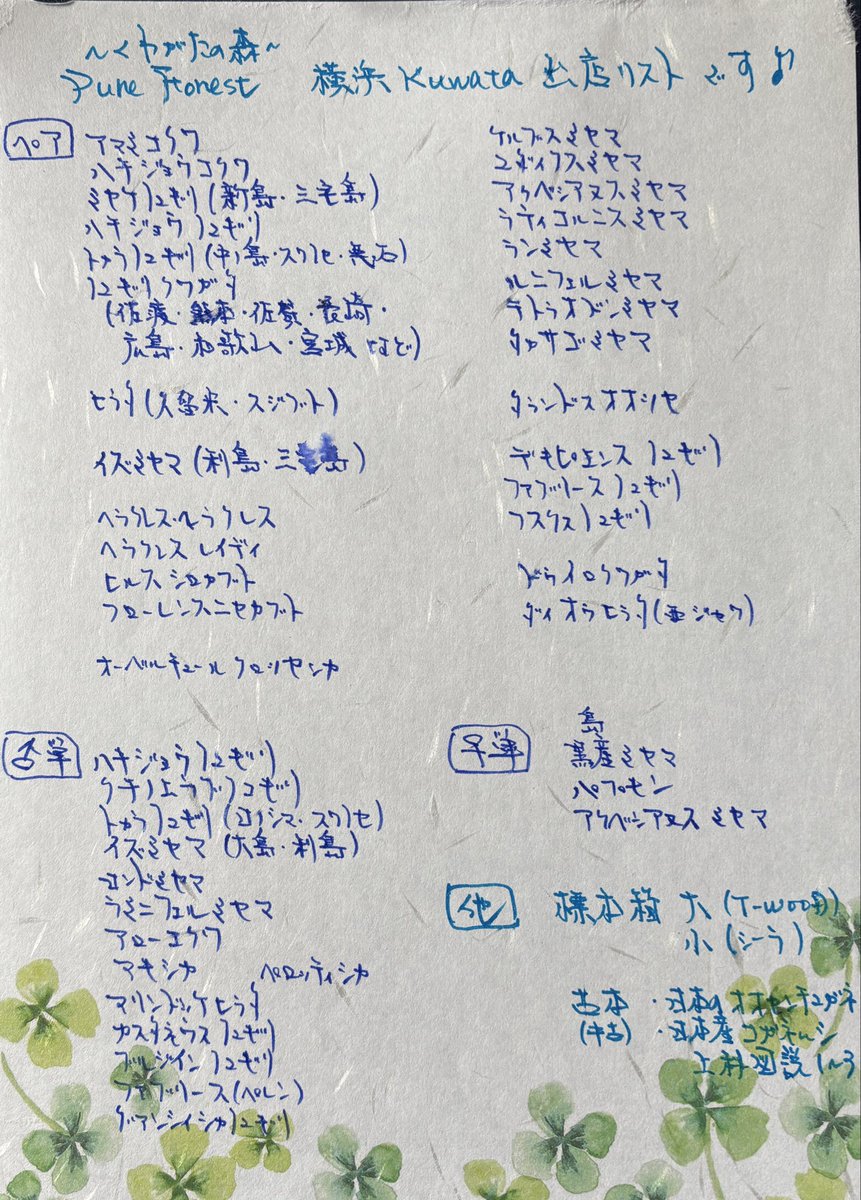 ～くわがたの森～
Pure Forest 横浜 Kuwata 出店リストです♪
ペア
アマミコクワ
ハチジョウコクワ
ミヤケノコギリ(新島・三宅島)
ハチジョウノコギリ
トカラノコギリ(中ノ島・スワノセ・悪石)
ノコギリクワガタ
(佐渡・熊本・佐賀・長崎・
広島・和歌山・宮城 など)
ヒラタ(久留米・スジブト)
イズミヤマ(利島・三宅島)
ヘラクレス・ヘラクレス
ヘラクレス レイディ
ヒルス シロカブト
フローレンスニセカブト
オーベルチュール クロツヤシカ
ケルブスミヤマ
ユダイクスミヤマ
アクベシアヌスミヤマ
ラティコルニスミヤマ
ランミヤマ
ルニフェルミヤマ
ラトラオドンミヤマ
タカサゴミヤマ
タランドスオオツヤ
デキピエンスノコギリ
ファブリースノコギリ
フスクスノコギリ
ドウイロクワガタ
ダイオウヒラタ(亜ジャワ)
♂単
ハチジョウノコギリ
クチノエラブノコギリ
トカラノコギリ(口ノシマ・スワノセ)
イズミヤマ(大島・利島)
コンドミヤマ
ラミニフェルミヤマ
アローコクワ
アキシカ ペロッティシカ
マリンドッケヒラタ
カスタネウスノコギリ
ブルジインノコギリ
ファブリース(ペレン)
グアンシイシカノコギリ
♀単
島
黒産ミヤマ
パプキン
アクベシアヌスミヤマ
他
標本箱 大(T-wood)
小(シーラ)
古本・日本のオオセンチコガネ
(中古)・日本産コガネムシ
上科図説1～3